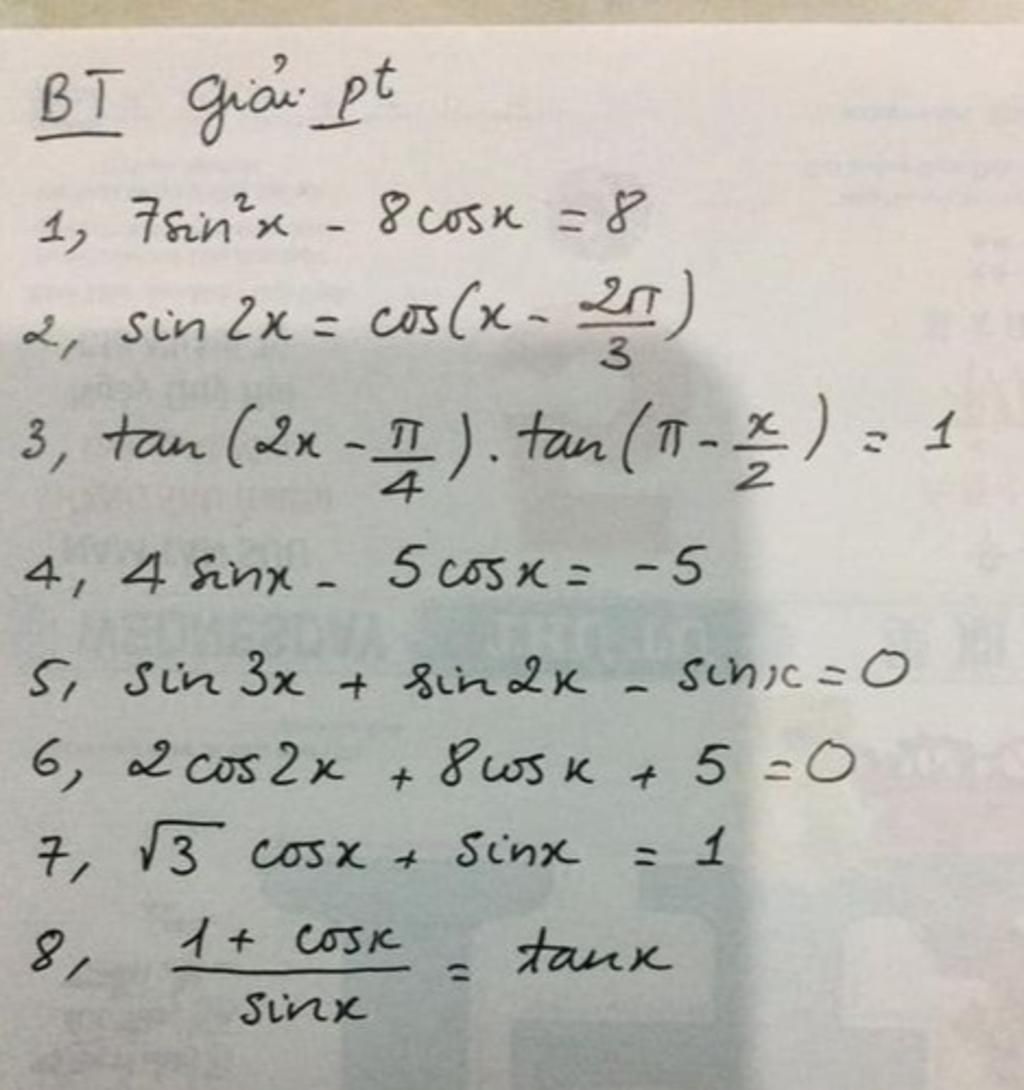 BT Giải pt
1, 7sin²x - 8cosx = 8
2, sin 2x = cos(x - 2π/3)
3, tan(2x - π/4) . tan(π - x/2) = 1
4, 4 sinx - 5cosx = -5
5, sin 3x + sin 2x - sinx = 0
6, 2cos2x + 8cosx + 5 = 0
7, √3 cosx + sinx = 1
8, (1 + cosx)/sinx = tanx